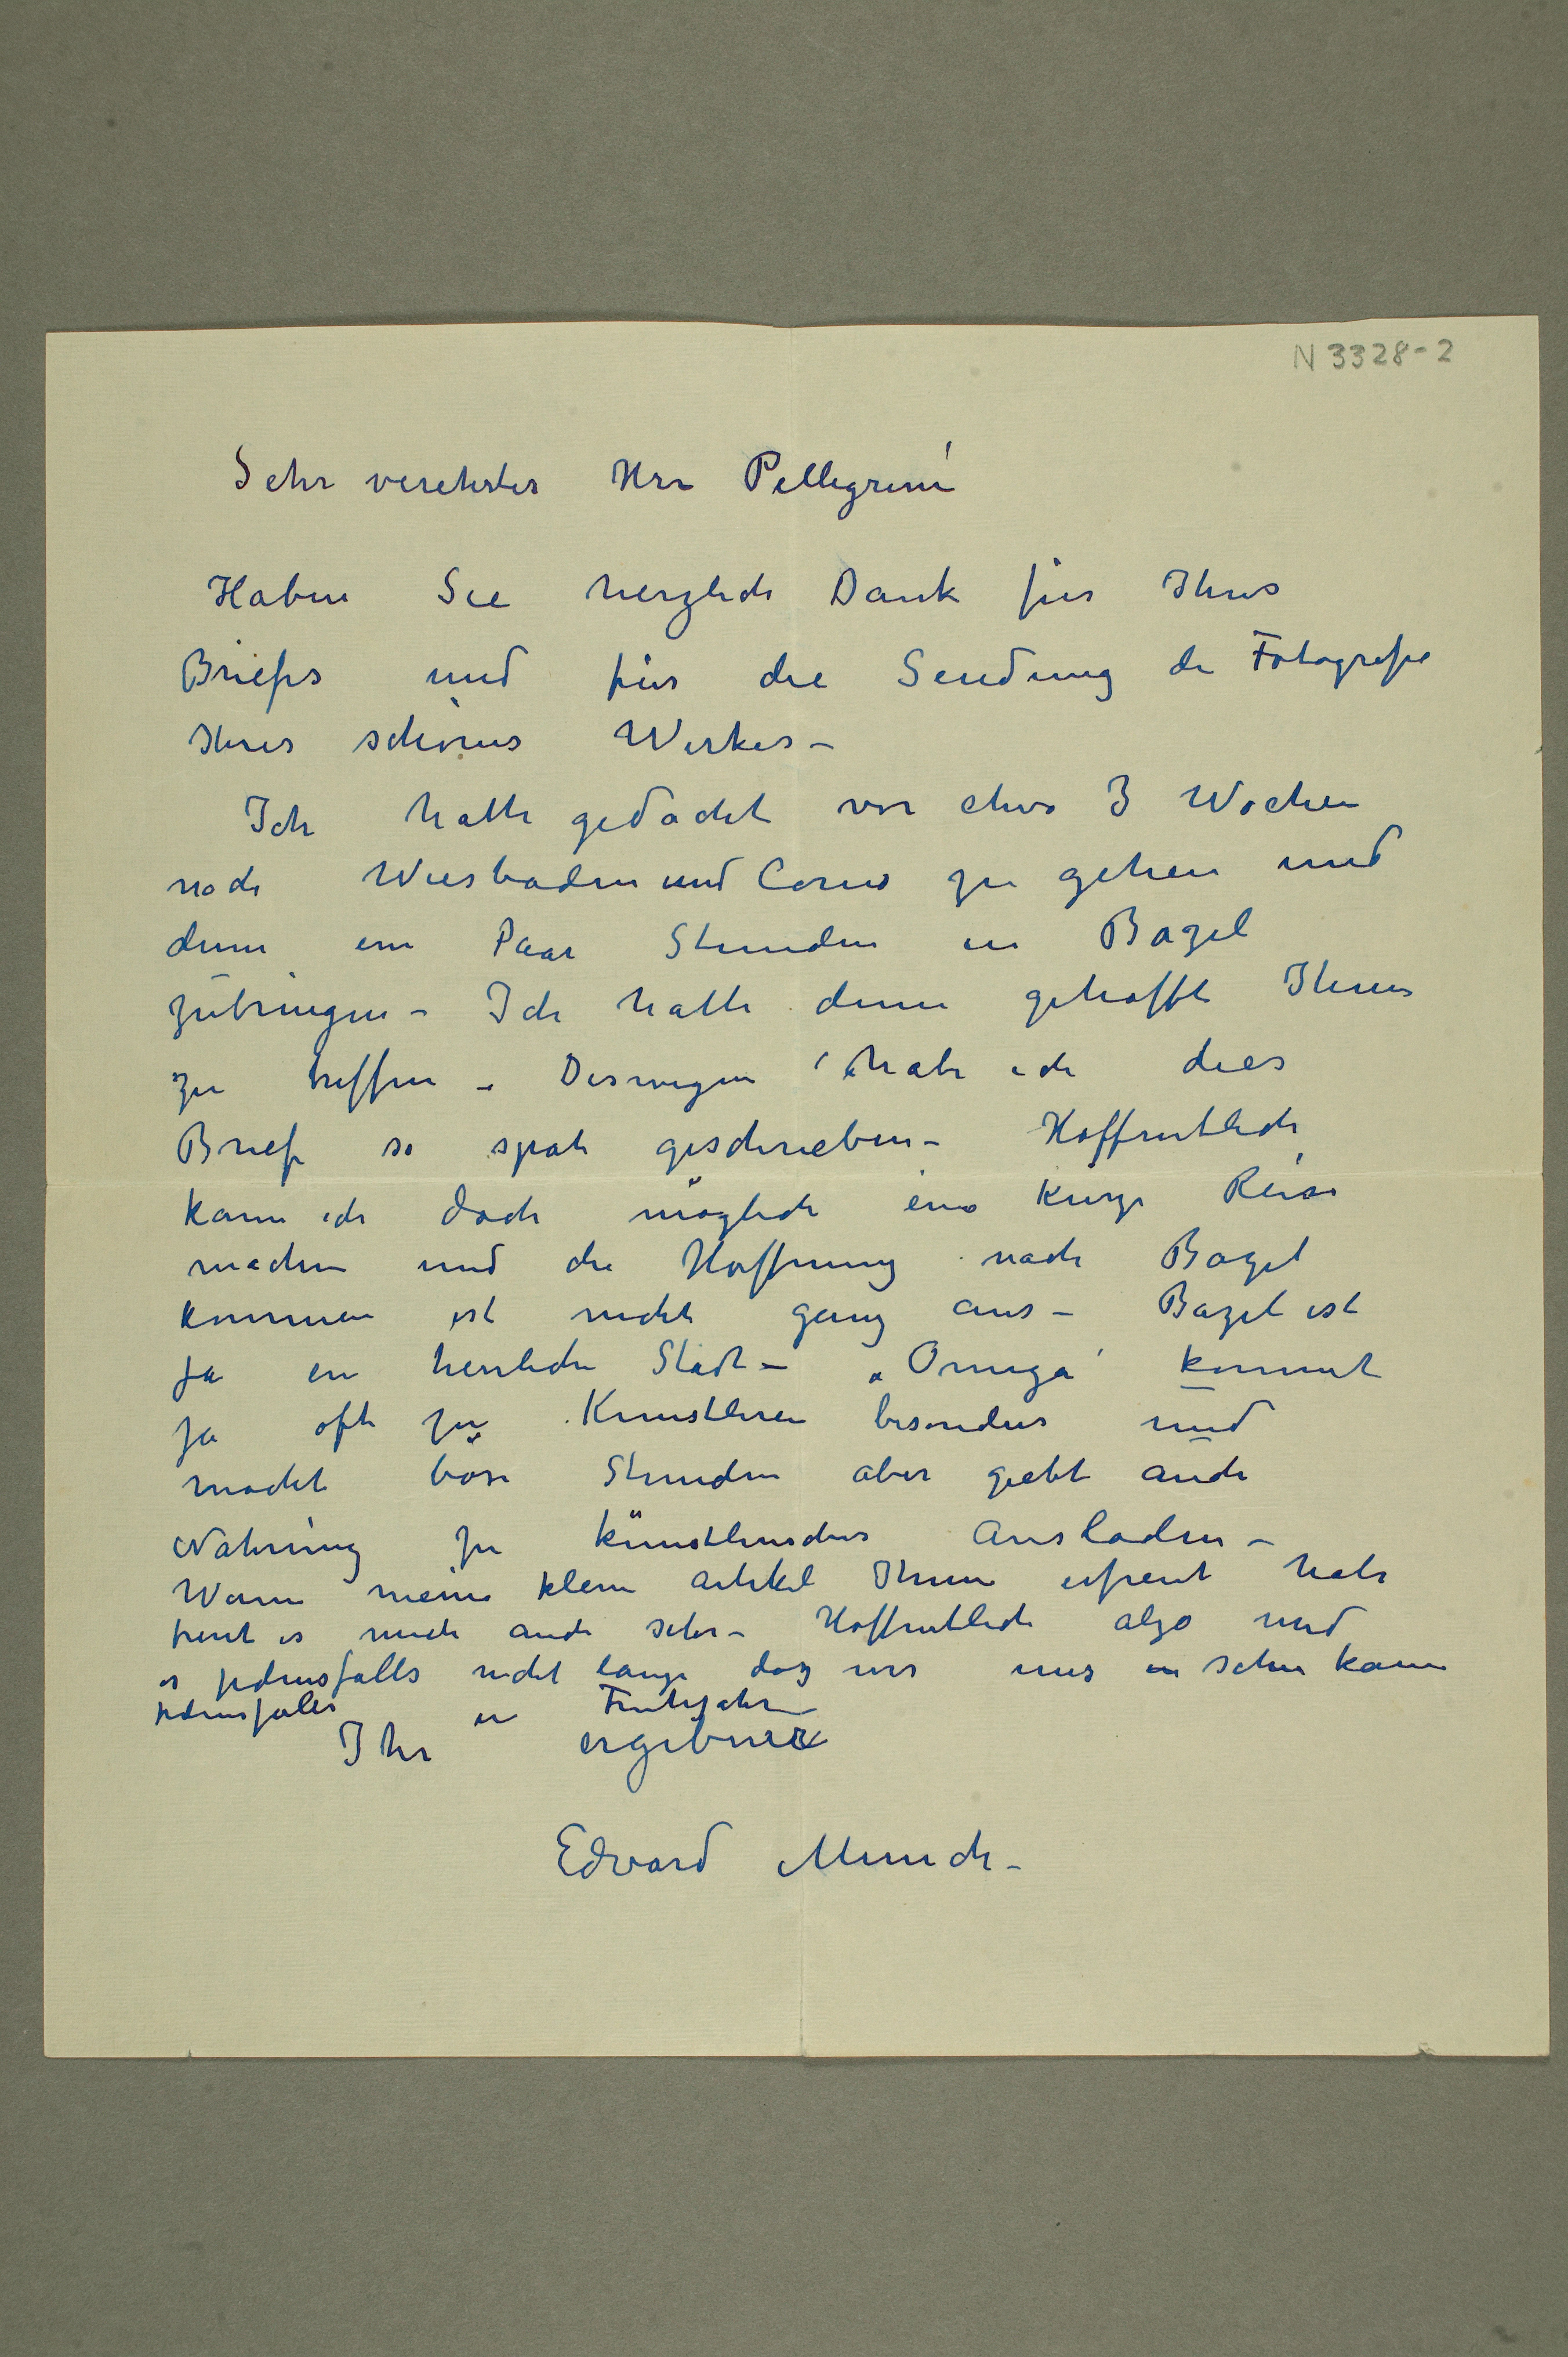 N 3328-2
Sehr verehrter Herr Pellegrini
Haben Sie herzlich Dank für Ihres
Briefes und für die Sendung de Fotografie
Ihres schönes Werkes –
Ich hatte gedacht vor etwa 3 Wochen
nach Wiesbaden und Corns zu gehen und
denn ein Paar Stunden in Bazel
zubringen – Ich hatte denn gehofft Ihnen
zu treffen – Deswegen habe ich dies
Brief so spät geschrieben – Hoffentlich
kann ich doch möglich eine kurze Reise
machen und die Hoffnung nach Bazel
kommen ist nicht ganz aus – Bazel ist
ja ein herrliche Stadt – „Omega" kommt
ja oft zu Kunstleren besonders und
macht böse Stunden aber giebt auch
Nahrung zu künstlerisches Ausladen –
Wann meine kleine Artikel Ihnen erfreut habe
freut es mich auch sehr – Hoffentlich also und
es jedensfalls nicht lange daz wir uns sehen kann
jedensfalls in Fruhjahr
Ihr ergebner
Edvard Munch –